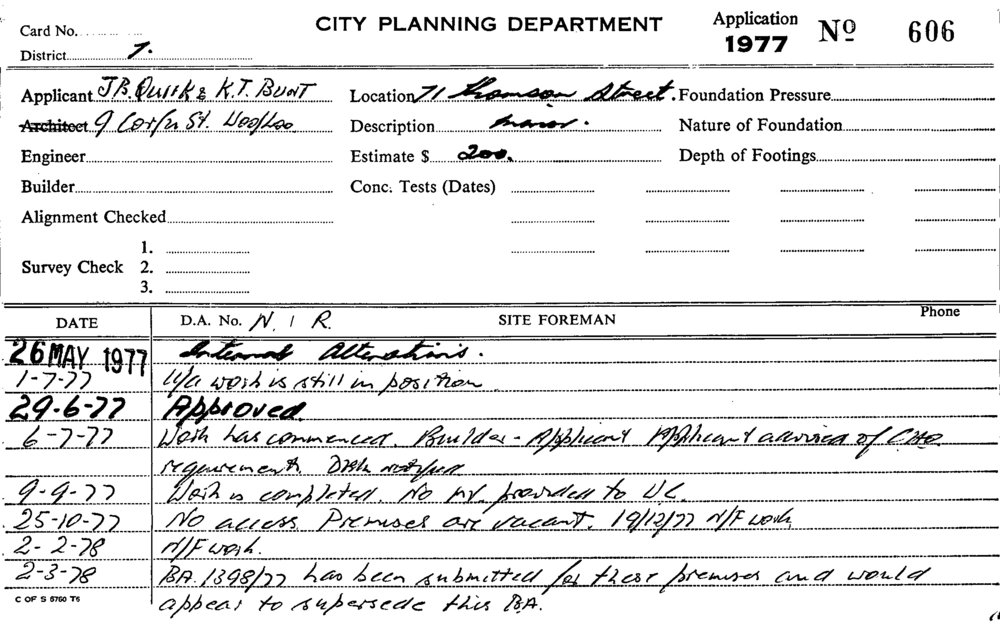 Card No.
CITY PLANNING DEPARTMENT
Application 1977 No 606
District 7.
Applicant J.B. Quirk & K.T. Bunt
Location 71 Thomson Street.
Foundation Pressure
Architect 9 St.
Description minor.
Nature of Foundation
Engineer
Estimate $ 200.
Depth of Footings
Builder
Conc. Tests (Dates)
Alignment Checked
1.
Survey Check 2.
3.
DATE D.A. No. N I R. SITE FOREMAN Phone
26 MAY 1977 Internal Alterations.
1-7-77 U/a work is still in position
29-6-77 Approved
6-7-77 Work has commenced. Builder - Applicant Applicant advised of
requirements notified
9-9-77 Work is completed. No provided to
25-10-77 No access. Premises are vacant. 19/12/77 N/F work
2-2-78 N/F work.
2-3-78 BA. 1398/77 has been submitted for these premises and would
appear to supersede this B.A.
C OF S 5750 T6